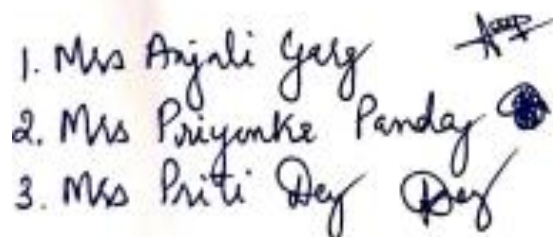 1. Mrs Anjali Garg
2. Mrs Priyanka Panday
3. Mrs Priti Dey Dey